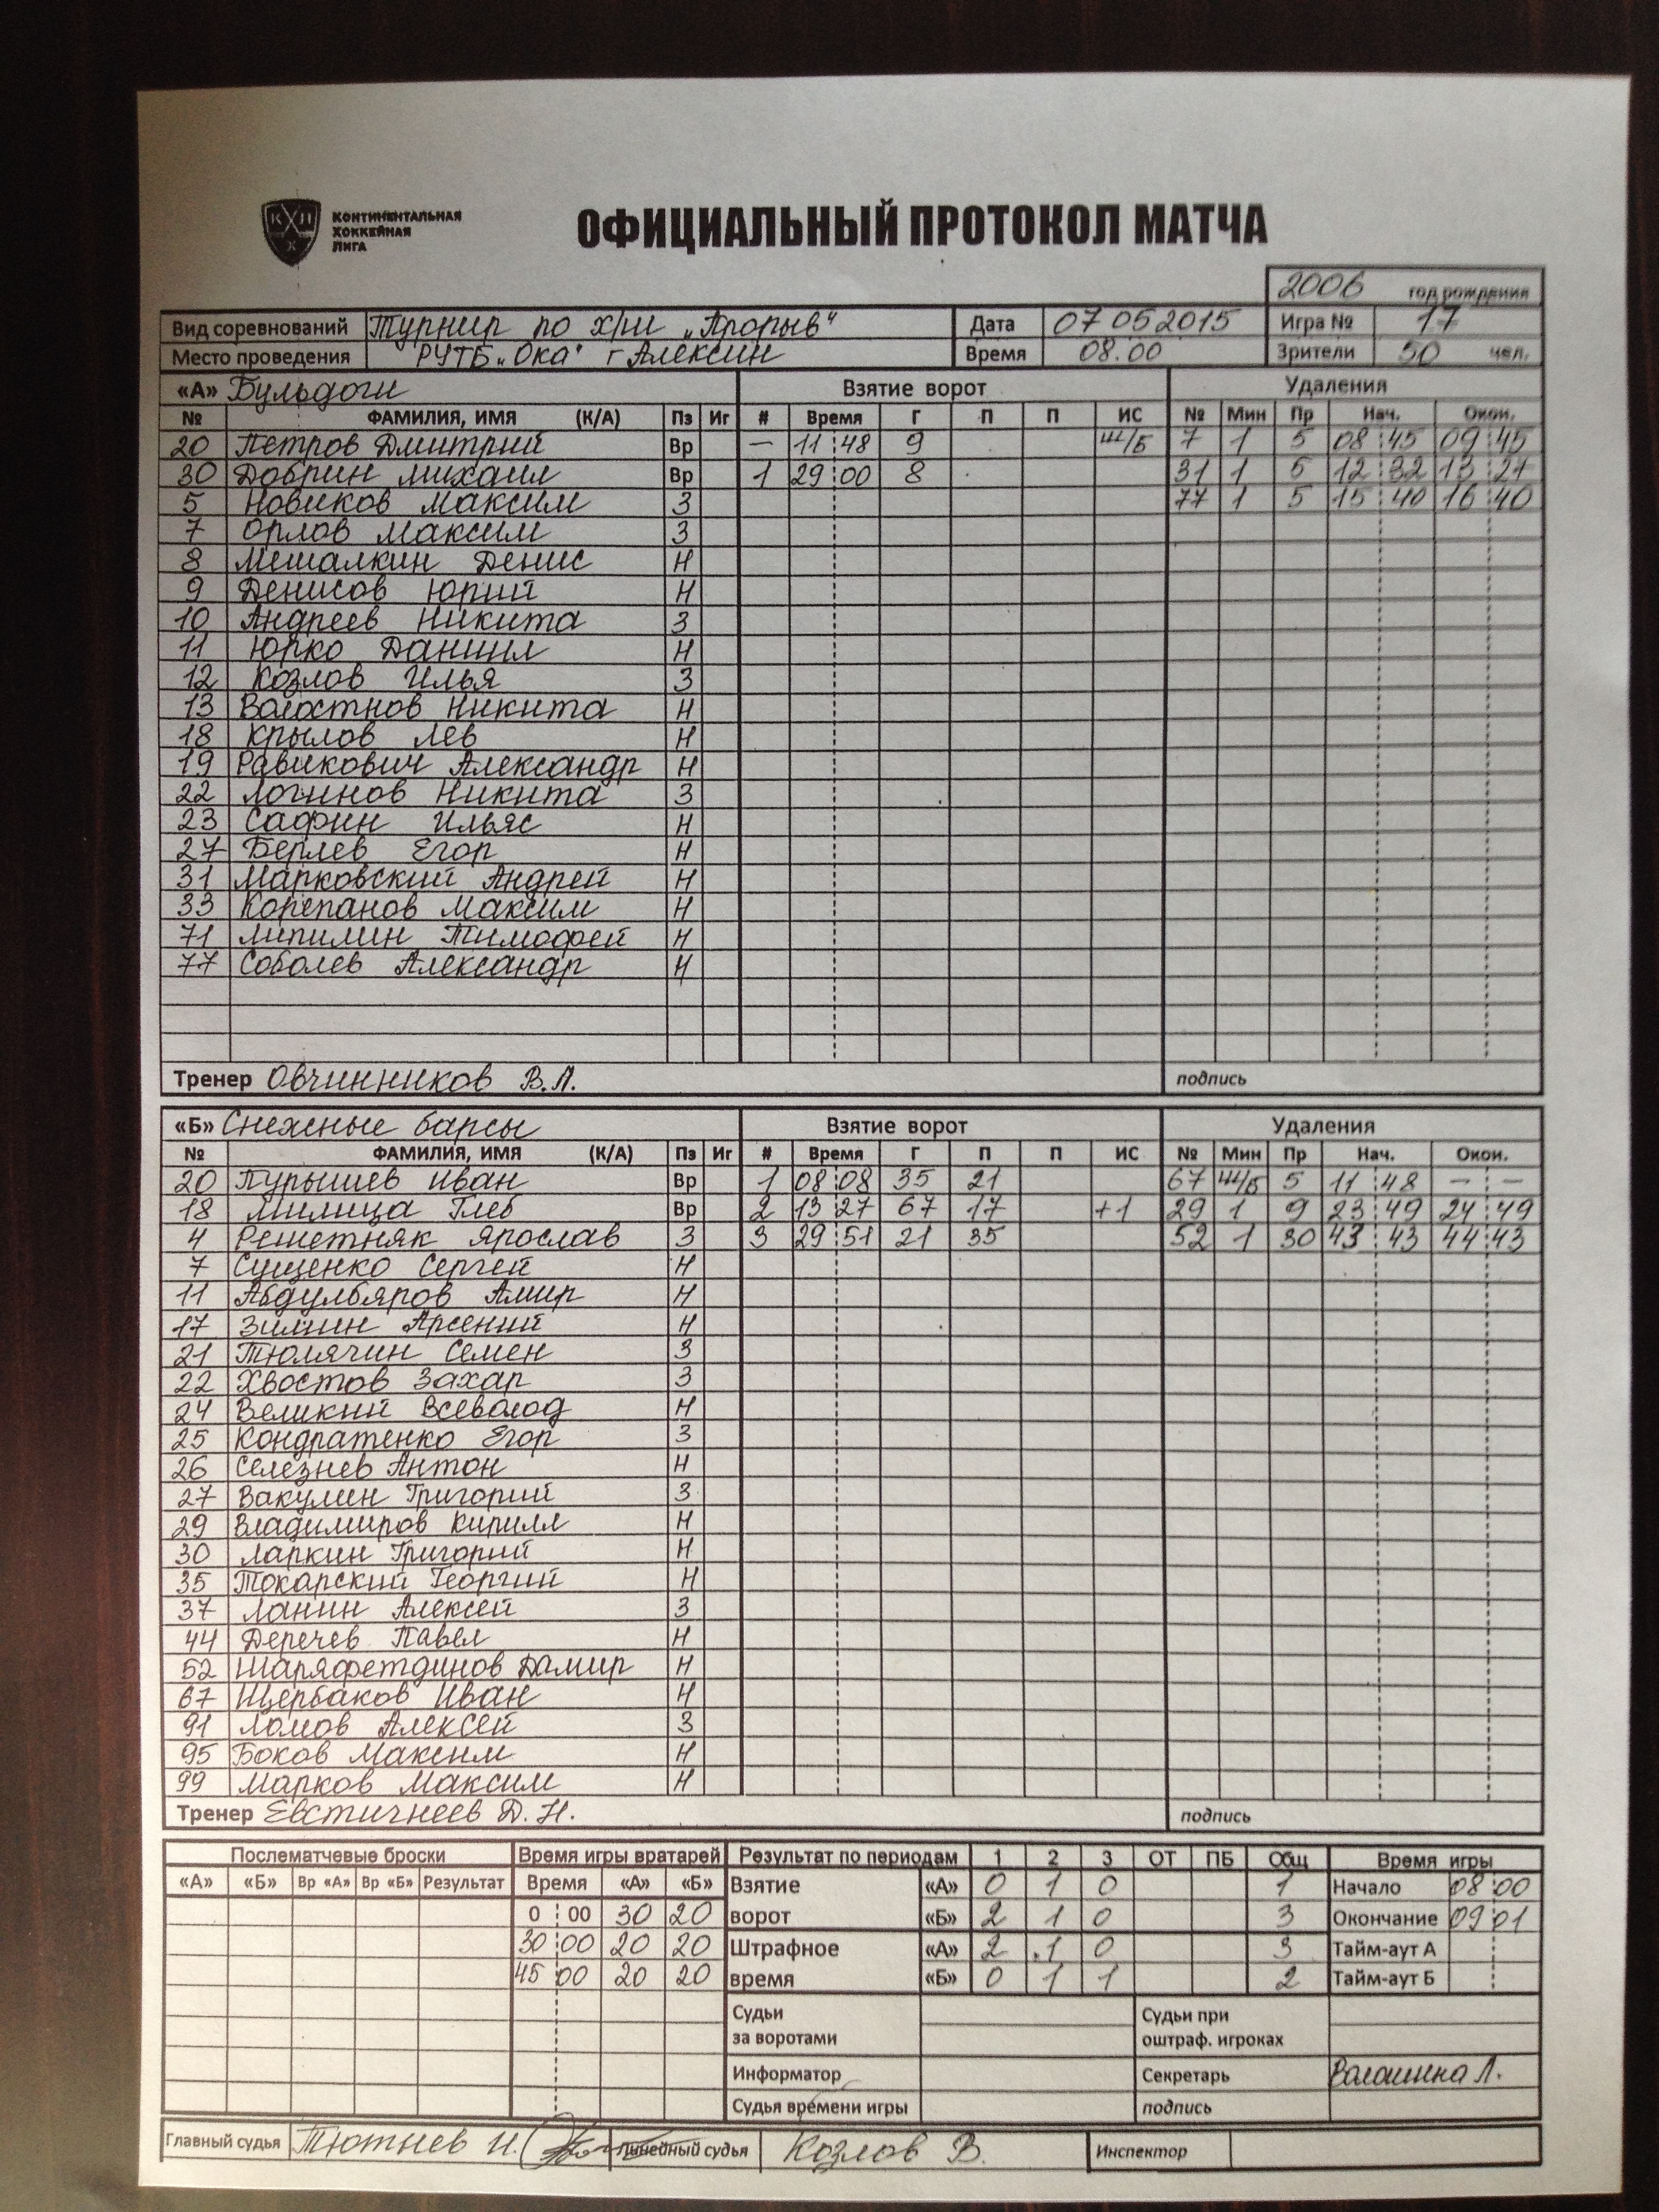 КОНТИНЕНТАЛЬНАЯ
ХОККЕЙНАЯ
ЛИГА
ОФИЦИАЛЬНЫЙ ПРОТОКОЛ МАТЧА
2006 год рождения
Вид соревнований Турнир по х/ш „Прорыв“ Дата 07 05 2015 Игра № 17
Место проведения РУТБ „Ока“ г Алексин Время 08.00 Зрители 50 чел.
«А» Бульдоги Взятие ворот Удаления
№ ФАМИЛИЯ, ИМЯ (К/А) Пз Иг # Время Г П П ИС № Мин Пр Нач. Окон.
20 Петров Дмитрий Вр — 11 48 9 Ш/Б 7 1 5 08 45 09 45
30 Добрин Михаил Вр 1 29 00 8 31 1 5 12 32 13 27
5 Новиков Максим З 77 1 5 15 40 16 40
7 Орлов Максим З
8 Мешалкин Денис Н
9 Денисов Юрий Н
10 Андреев Никита З
11 Юрко Даниил Н
12 Козлов Илья З
13 Волостнов Никита Н
18 Крылов Лев Н
19 Равикович Александр Н
22 Логинов Никита З
23 Сафин Ильяс Н
27 Берлев Егор Н
31 Марковский Андрей Н
33 Корепанов Максим Н
71 Липилин Тимофей Н
77 Соболев Александр Н
Тренер Овчинников В.Л. подпись
«Б» Снежные барсы Взятие ворот Удаления
№ ФАМИЛИЯ, ИМЯ (К/А) Пз Иг # Время Г П П ИС № Мин Пр Нач. Окон.
20 Пурышев Иван Вр 1 08 08 35 21 67 Ш/Б 5 11 48 — —
18 Милица Глеб Вр 2 13 27 67 17 +1 29 1 9 23 49 24 49
4 Решетняк Ярослав З 3 29 51 21 35 52 1 30 43 43 44 43
7 Сущенко Сергей Н
11 Абдулбяров Амир Н
17 Зимин Арсений Н
21 Тюлячин Семен З
22 Хвостов Захар З
24 Великий Всеволод Н
25 Кондратенко Егор З
26 Селезнев Антон Н
27 Вакулин Григорий З
29 Владимиров Кирилл Н
30 Ларкин Григорий Н
35 Токарский Георгий Н
37 Ланин Алексей З
44 Деречев Павел Н
52 Шаряфетдинов Дамир Н
67 Щербаков Иван Н
91 Ломов Алексей З
95 Боков Максим Н
99 Марков Максим Н
Тренер Евстигнеев Д.Н. подпись
Послематчевые броски Время игры вратарей Результат по периодам 1 2 3 ОТ ПБ Общ Время игры
«А» «Б» Вр «А» Вр «Б» Результат Время «А» «Б» Взятие «А» 0 1 0 1 Начало 08 00
0 00 30 20 ворот «Б» 2 1 0 3 Окончание 09 01
30 00 20 20 Штрафное «А» 2 1 0 3 Тайм-аут А
45 00 20 20 время «Б» 0 1 1 2 Тайм-аут Б
Судьи за воротами Судьи при оштраф. игроках
Информатор Секретарь Л.
Судья времени игры подпись
Главный судья Тютнев И. Линейный судья Козлов В. Инспектор